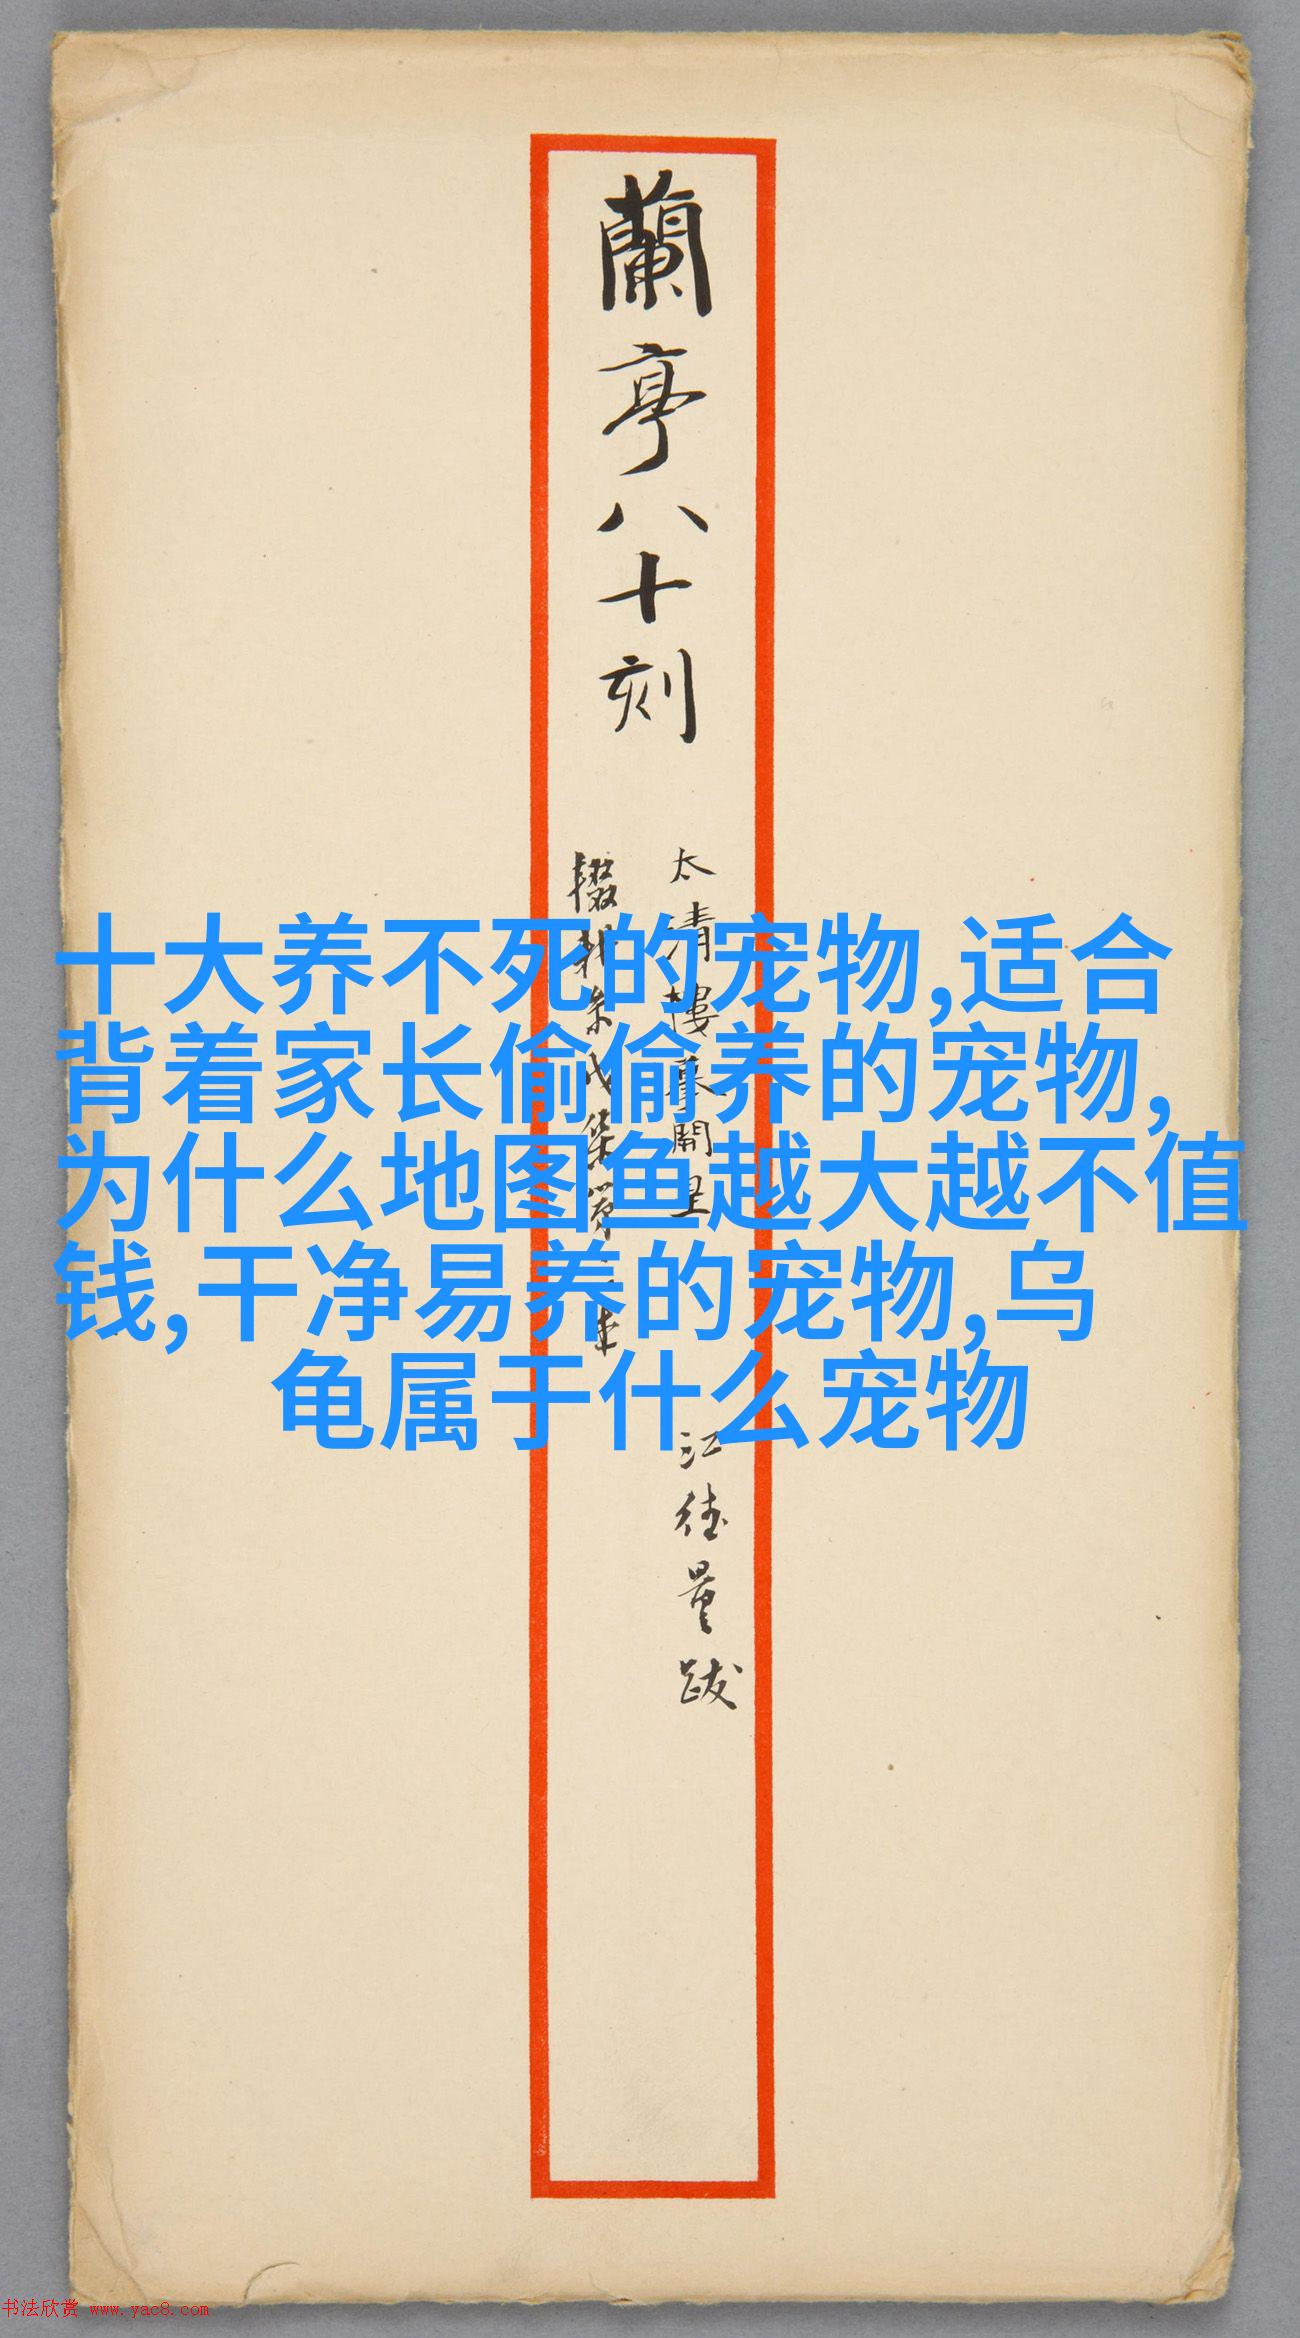 蘭亭八十刻
太清樓摹關里
江德量跋
十大养不死的宠物,适合
背着家长偷偷养的宠物,
为什么地图鱼越大越不值
钱,干净易养的宠物,乌
龟属于什么宠物
书法欣赏 www.yac8.com